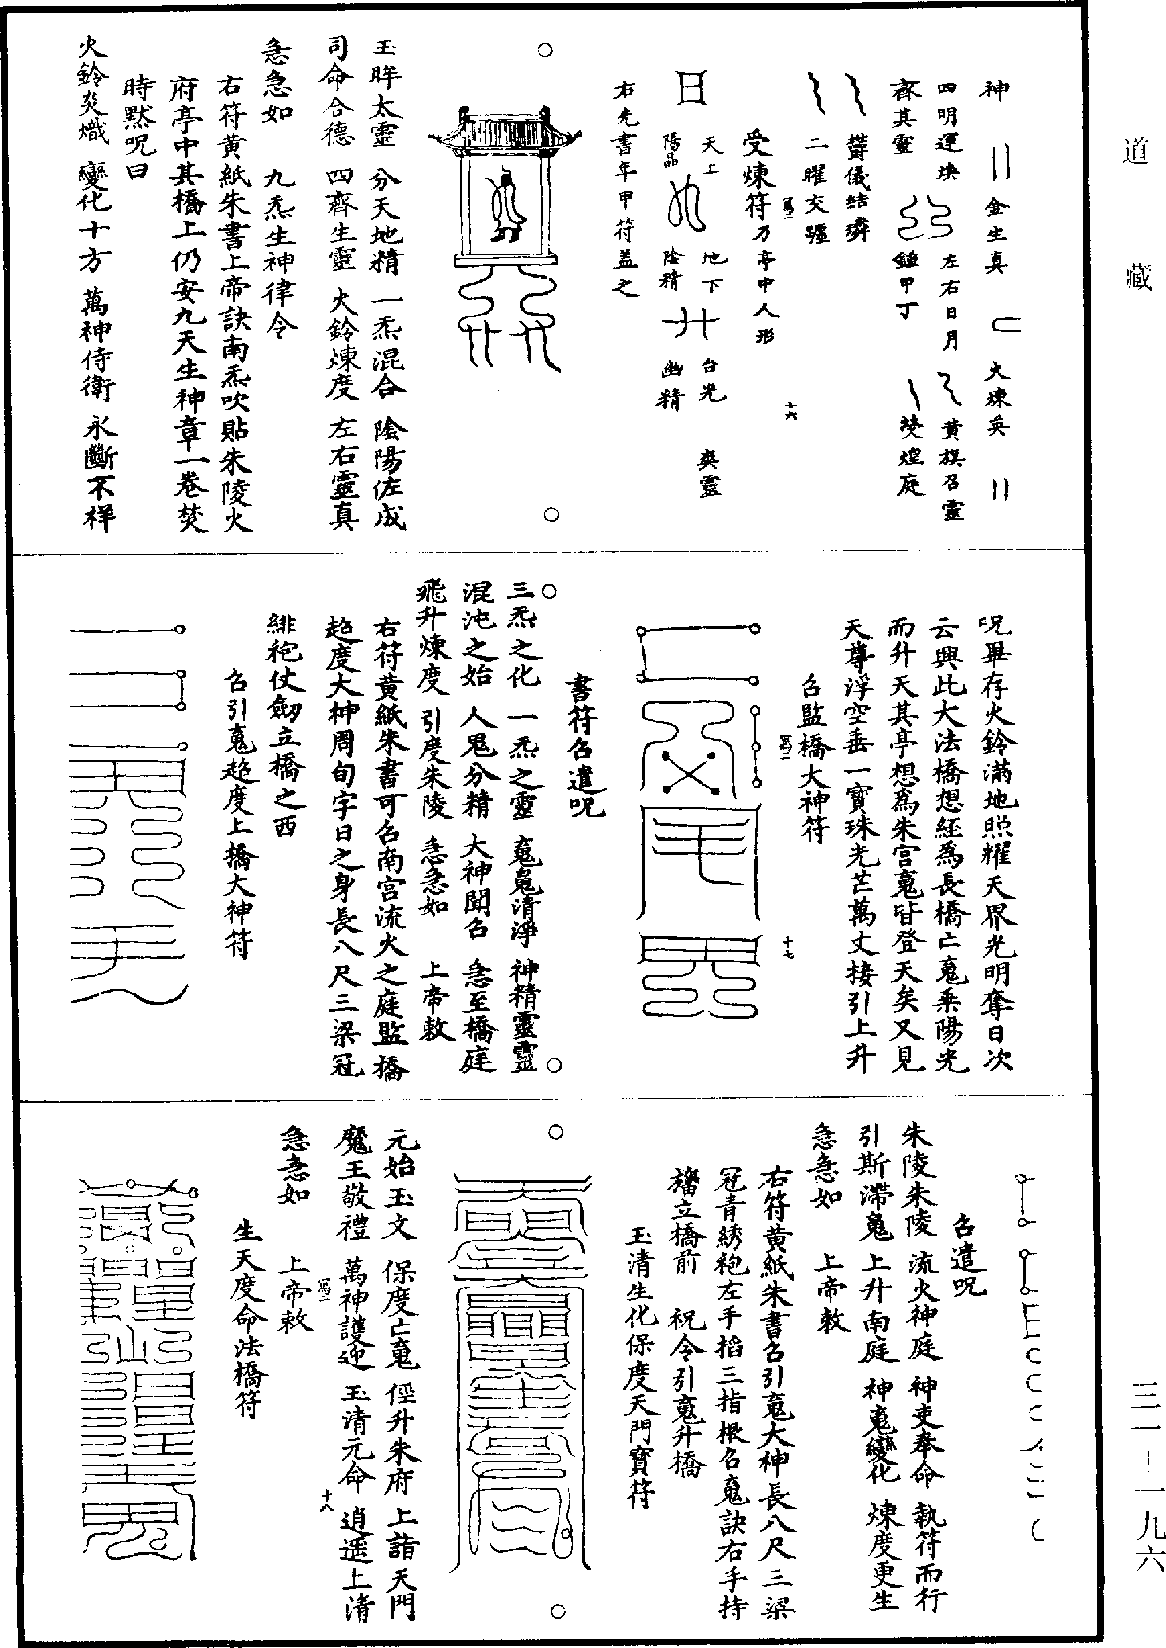 道藏
神 金生真 火煉兵
四明運埃 左右日月 黃旗召靈
齊其靈 鍾甲丁 熒煌庭
欝儀結璘
二曜交疆
受煉符乃亭中人形
十六
日 天上 地下 台光 爽靈
陽晶 陰精 幽精
右先書年甲符蓋之
玉眸太靈 分天地精 一炁混合 陰陽佐成
司命合德 四齊生靈 火鈴煉度 左右靈真
急急如 九炁生神律令
右符黃紙朱書上帝訣南炁吹貼朱陵火
府亭中其橋上仍安九天生神章一卷焚
時默呪曰
火鈴炎熾 變化十方 萬神侍衛 永斷不祥
呪畢存火鈴滿地照耀天界光明奪日次
云興此大法橋想經為長橋亡䰟乘陽光
而升天其亭想為朱宮䰟皆登天矣又見
天尊浮空垂一寶珠光芒萬丈接引上升
召監橋大神符
十七
書符召遣呪
三炁之化 一炁之靈 䰟䰟清淨 神精靈靈
混沌之始 人鬼分精 大神聞召 急至橋庭
飛升煉度 引度朱陵 急急如 上帝敕
右符黃紙朱書可召南宮流火之庭監橋
超度大神周旬字日之身長八尺三梁冠
緋袍仗劒立橋之西
召引䰟超度上橋大神符
召遣呪
朱陵朱陵 流火神庭 神吏奉命 執符而行
引斯滯䰟 上升南庭 神䰟變化 煉度更生
急急如 上帝敕
右符黃紙朱書召引䰟大神長八尺三梁
冠青綉袍左手掐三指根召䰟訣右手持
旛立橋前 祝令引䰟升橋
玉清生化保度天門寶符
元始玉文 保度亡䰟 徑升朱府 上詣天門
魔王敬禮 萬神護迎 玉清元命 逍遥上清
急急如 上帝敕
十八
生天度命法橋符
三一-一九六